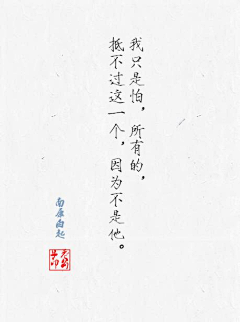 我只是怕，所有的，
抵不过这一个，因为不是他。
南康白起